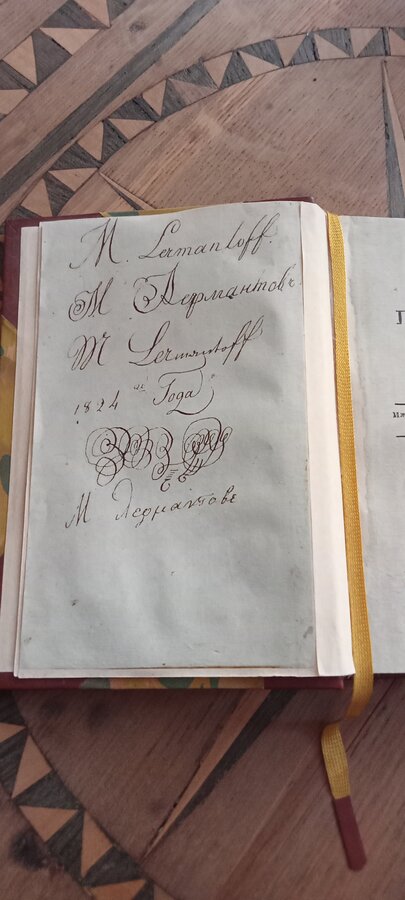 M Lermantoff.
М Лермантовъ
M Lermantoff
1824 го Года
М Лермантовъ